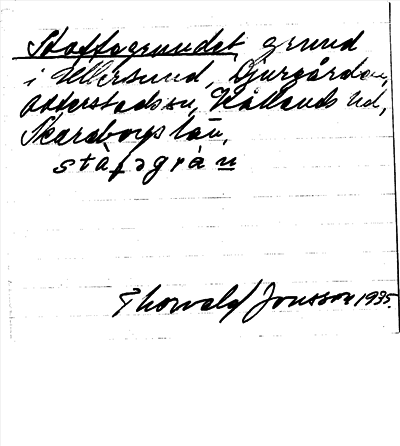 Staffagrundet, grund
i Ullersund, Djurgården,
Otterstads sn, Kållands hd,
Skaraborgs län.
Thorvald Jonsson 1935.